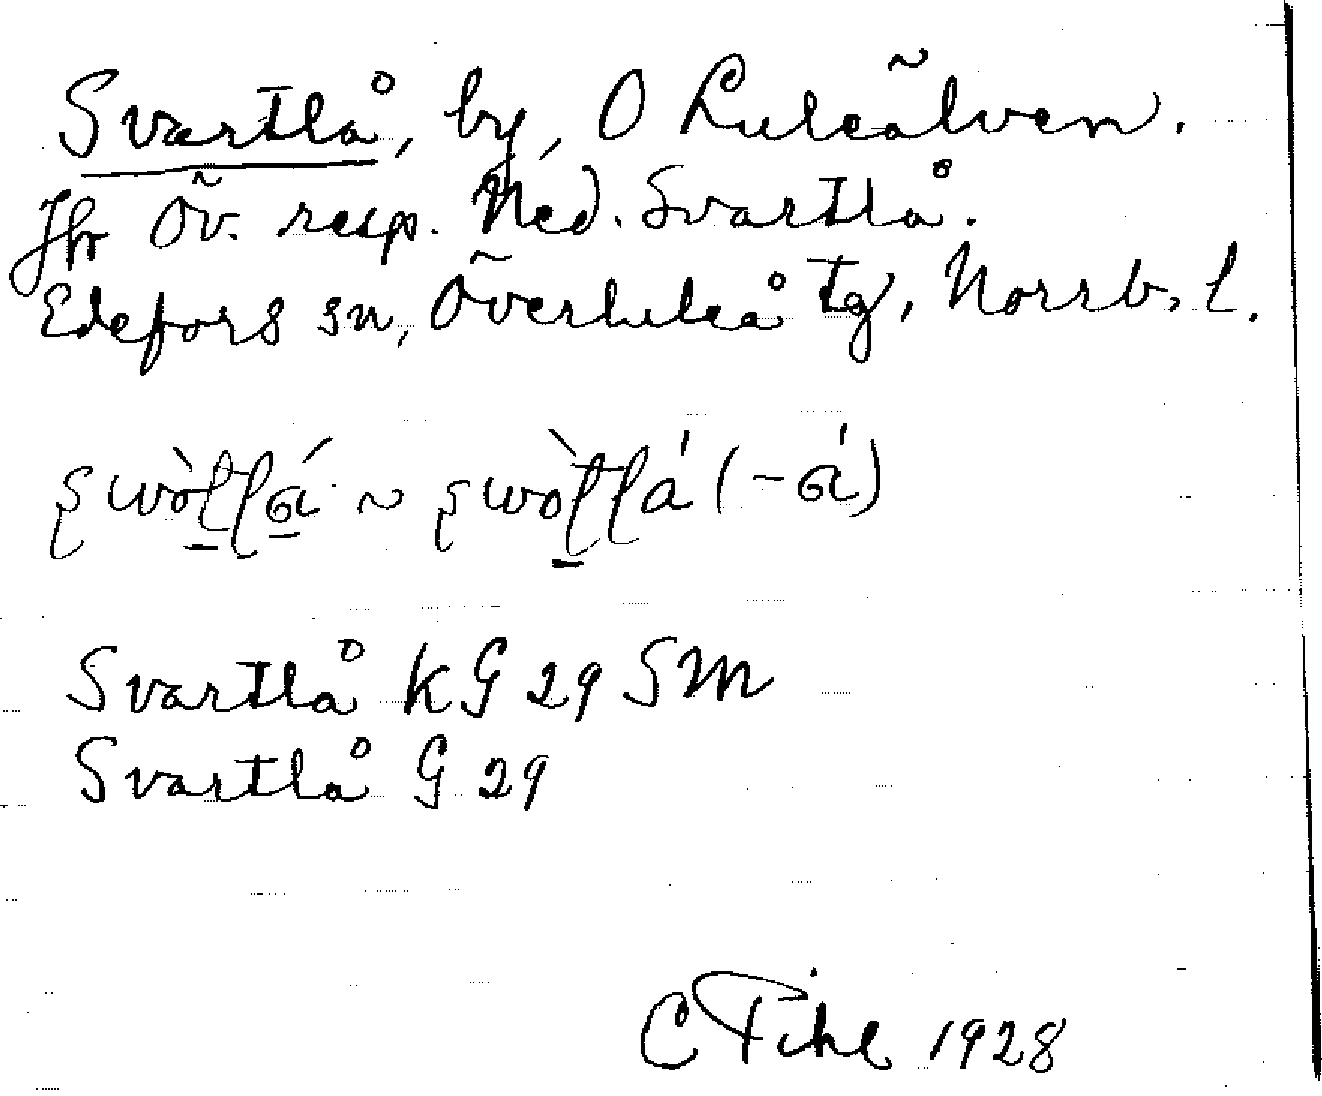 Svartlå, by, O Luleälven.
Jfr Öv. resp. Ned. Svartlå.
Edefors sn, Överluleå tg, Norrb. l.
Svartlå KG 29 SM
Svartlå G 29
C 1928